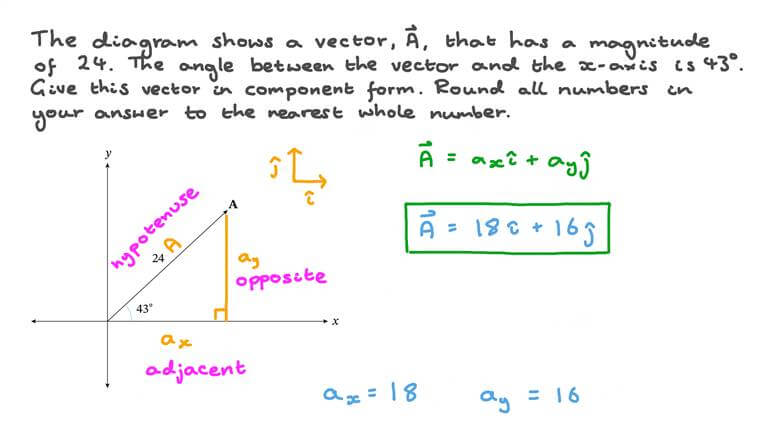 The diagram shows a vector, A⃗, that has a magnitude
of 24. The angle between the vector and the x-axis is 43°.
Give this vector in component form. Round all numbers in
your answer to the nearest whole number.
A⃗ = aₓî + aᵧĵ
A⃗ = 18î + 16ĵ
y
ĵ
î
hypotenuse
A
A
24
aᵧ
opposite
43°
x
aₓ
adjacent
aₓ = 18
aᵧ = 16